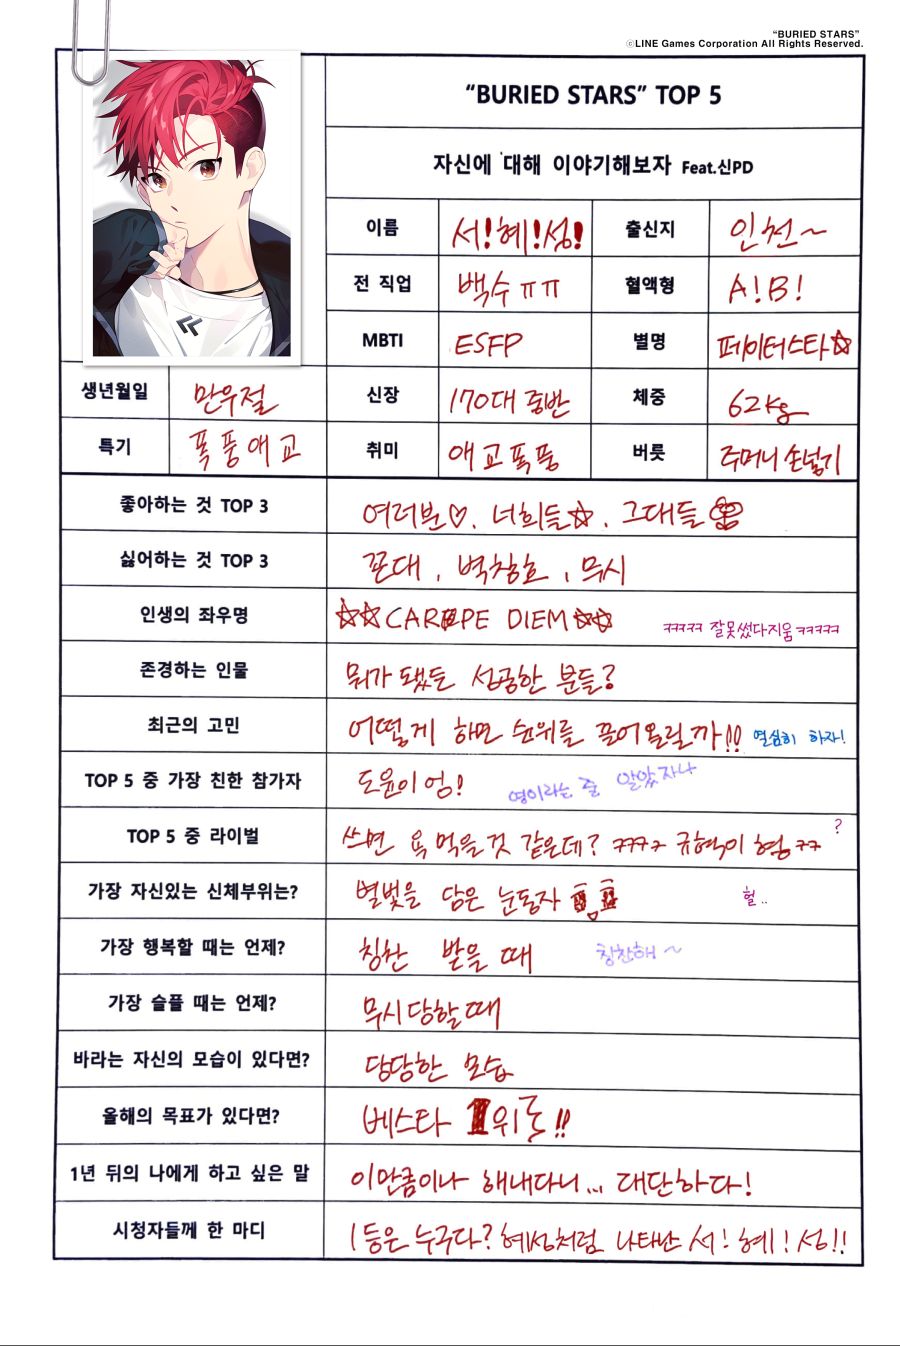 “BURIED STARS”
ⓒLINE Games Corporation All Rights Reserved.
“BURIED STARS” TOP 5
자신에 대해 이야기해보자 Feat.신PD
이름 서!혜!성! 출신지 인천~
전 직업 백수ㅠㅠ 혈액형 A!B!
MBTI ESFP 별명 페이터스타☆
생년월일 만우절 신장 170대 중반 체중 62kg
특기 폭풍애교 취미 애교폭풍 버릇 주머니 손넣기
좋아하는 것 TOP 3 여러분♡, 너희들☆, 그대들
싫어하는 것 TOP 3 꼰대, 벽창호, 무시
인생의 좌우명 ☆☆CARPE DIEM☆☆ ㅋㅋㅋㅋ 잘못썼다지움ㅋㅋㅋㅋㅋ
존경하는 인물 뭐가 됐든 성공한 분들?
최근의 고민 어떻게 하면 순위를 끌어올릴까!! 열심히 하자!
TOP 5 중 가장 친한 참가자 도윤이 엉! 영이라는 줄 알았자나
TOP 5 중 라이벌 쓰면 욕 먹을것 같은데? ㅋㅋㅋㅋ 규혁이 형ㅋㅋ ?
가장 자신있는 신체부위는? 별빛을 담은 눈동자 헐..
가장 행복할 때는 언제? 칭찬 받을 때 칭찬해~
가장 슬플 때는 언제? 무시당할때
바라는 자신의 모습이 있다면? 당당한 모습
올해의 목표가 있다면? 베스타 1위로!!
1년 뒤의 나에게 하고 싶은 말 이만큼이나 해내다니... 대단하다!
시청자들께 한 마디 1등은 누구다? 혜성처럼 나타난 서!혜!성!!